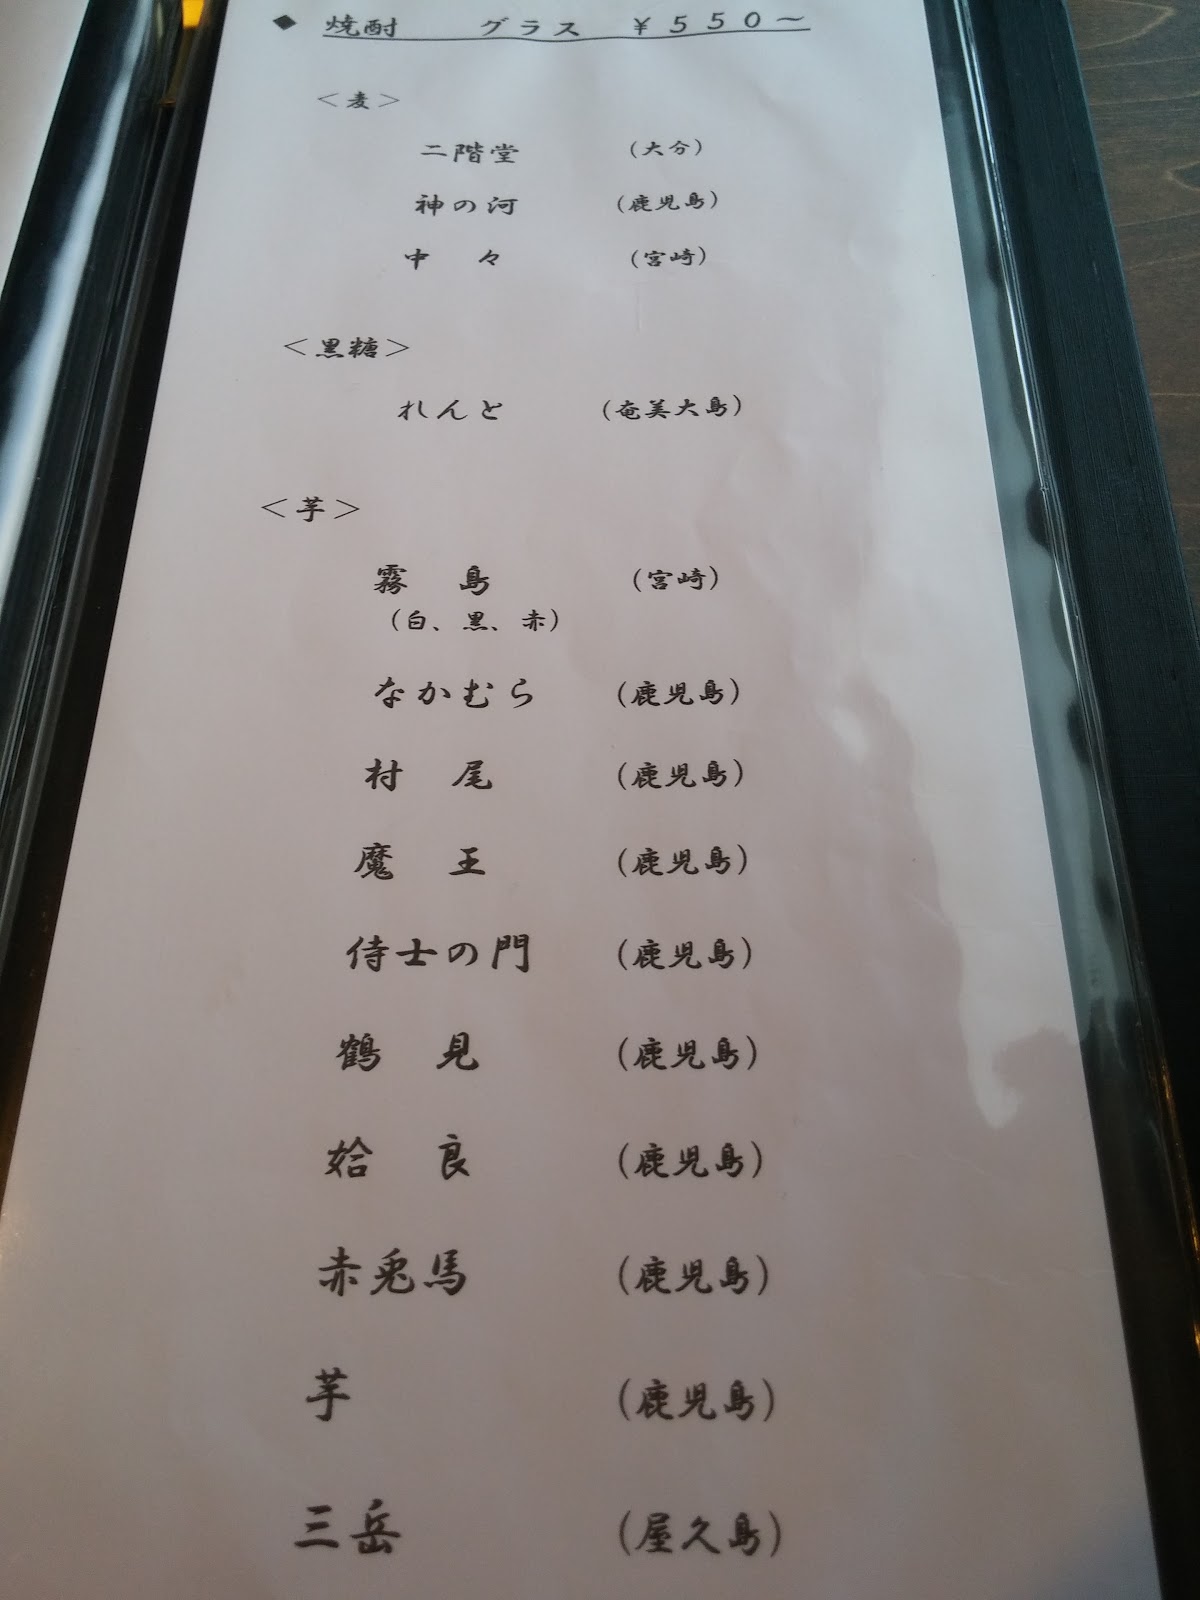 ◆ 焼酎 グラス ￥５５０～
＜麦＞
二階堂 （大分）
神の河 （鹿児島）
中々 （宮崎）
＜黒糖＞
れんと （奄美大島）
＜芋＞
霧島 （宮崎）
（白、黒、赤）
なかむら （鹿児島）
村尾 （鹿児島）
魔王 （鹿児島）
侍士の門 （鹿児島）
鶴見 （鹿児島）
姶良 （鹿児島）
赤兎馬 （鹿児島）
芋 （鹿児島）
三岳 （屋久島）